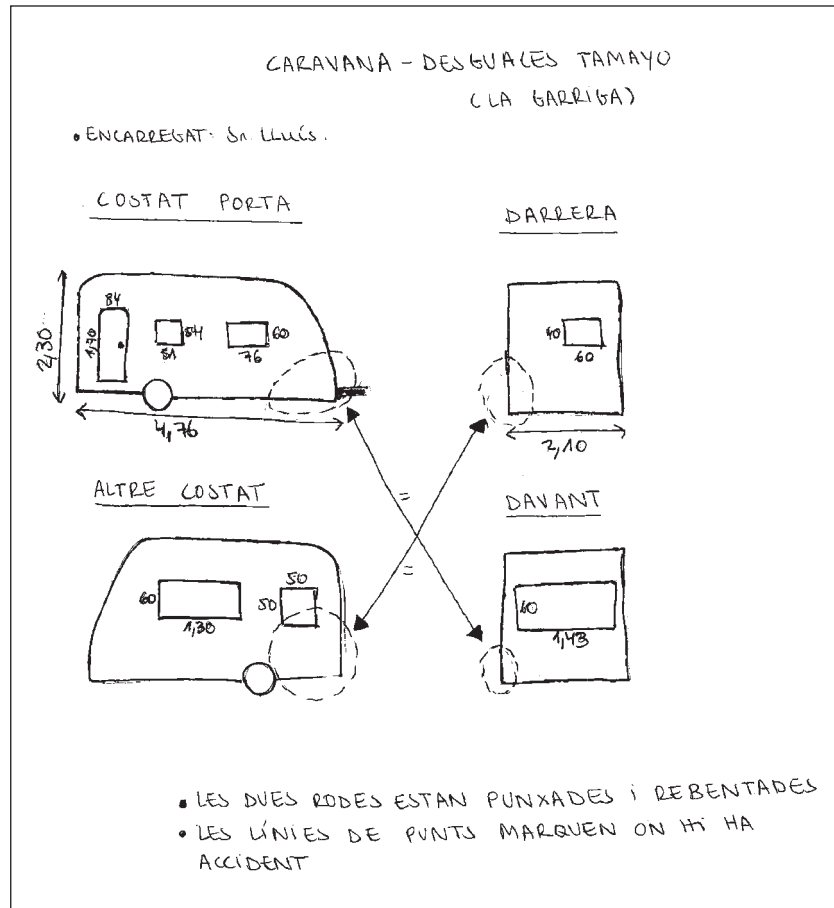 CARAVANA - DESGUACES TAMAYO
(LA GARRIGA)
• ENCARREGAT: Sr. LLUÍS.
COSTAT PORTA
DARRERA
84
1,70
54
51
60
76
2,30
4,76
40
60
2,10
ALTRE COSTAT
=
=
DAVANT
60
1,38
50
50
60
1,43
• LES DUES RODES ESTAN PUNXADES i REBENTADES
• LES LÍNIES DE PUNTS MARQUEN ON HI HA
ACCIDENT